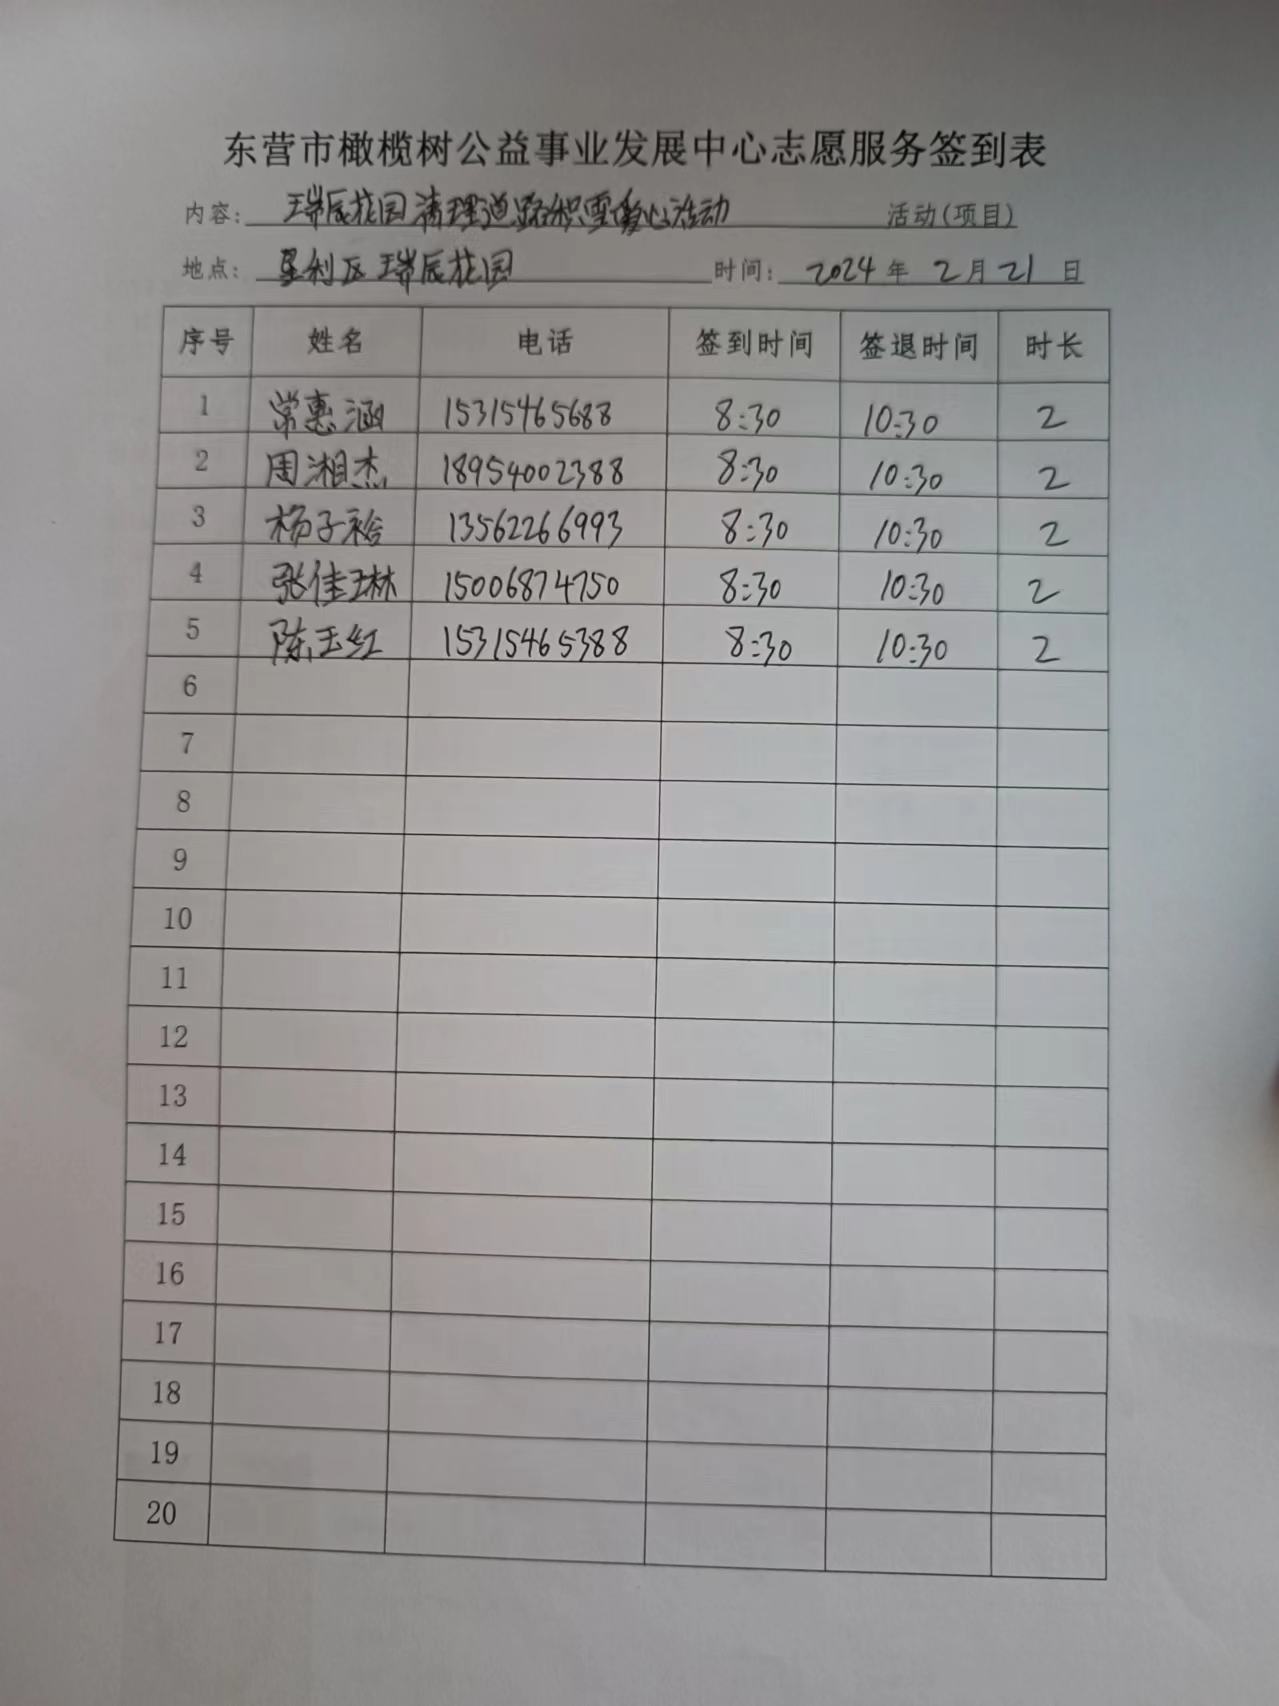 东营市橄榄树公益事业发展中心志愿服务签到表
内容: 瑞辰花园清理道路积雪爱心活动 活动(项目)
地点: 垦利区瑞辰花园 时间: 2024年2月21日
序号 姓名 电话 签到时间 签退时间 时长
1 常惠涵 15315465688 8:30 10:30 2
2 周湘杰 18954002388 8:30 10:30 2
3 杨子裕 13562266993 8:30 10:30 2
4 张佳琳 15006874750 8:30 10:30 2
5 陈玉红 15315465388 8:30 10:30 2
6
7
8
9
10
11
12
13
14
15
16
17
18
19
20